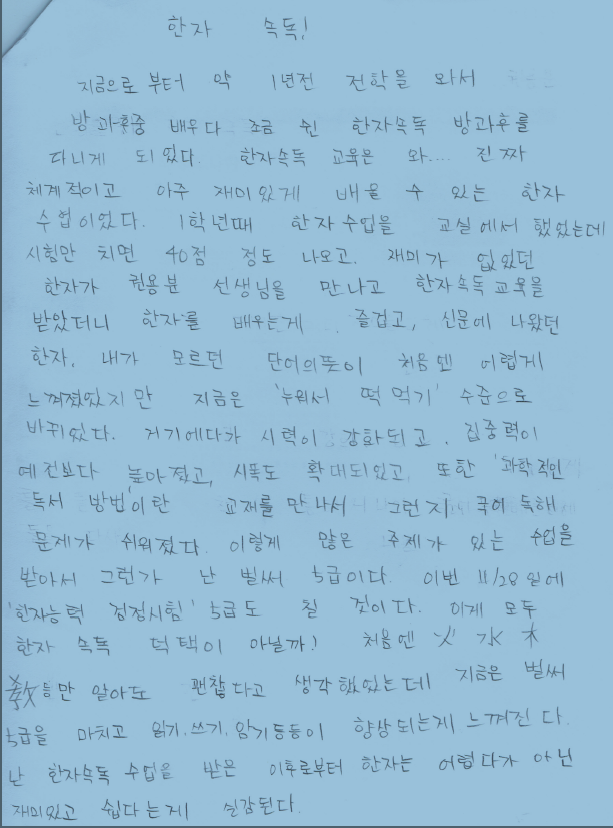 한자 속독!
지금으로 부터 약 1년전 전학을 와서
방과후중 배우다 조금 쉰 한자속독 방과후를
다니게 되었다. 한자속독 교육은 와.... 진짜
체계적이고 아주 재미있게 배울 수 있는 한자
수업이었다. 1학년때 한자수업을 교실에서 했었는데
시험만 치면 40점 정도 나오고. 재미가 없었던
한자가 권용분 선생님을 만나고 한자속독 교육을
받았더니 한자를 배우는게 즐겁고, 신문에 나왔던
한자, 내가 모르던 단어의뜻이 처음엔 어렵게
느껴졌었지만 지금은 '누워서 떡 먹기' 수준으로
바뀌었다. 거기에다가 시력이 강화되고, 집중력이
예전보다 높아졌고, 시폭도 확대되었고, 또한 '과학적인
독서 방법'이란 교재를 만나서 그런지 국어 독해
문제가 쉬워졌다. 이렇게 많은 주제가 있는 수업을
받아서 그런가 난 벌써 5급이다. 이번 11/28일에
'한자능력 검정시험' 5급도 칠 것이다. 이게 모두
한자 속독 덕택이 아닐까! 처음엔 火 水 木
敎등만 알아도 괜찮다고 생각했었는데 지금은 벌써
5급을 마치고 읽기.쓰기.암기등등이 향상되는게 느껴진다.
난 한자속독 수업을 받은 이후로부터 한자는 어렵다가 아닌
재미있고 쉽다는게 실감된다.